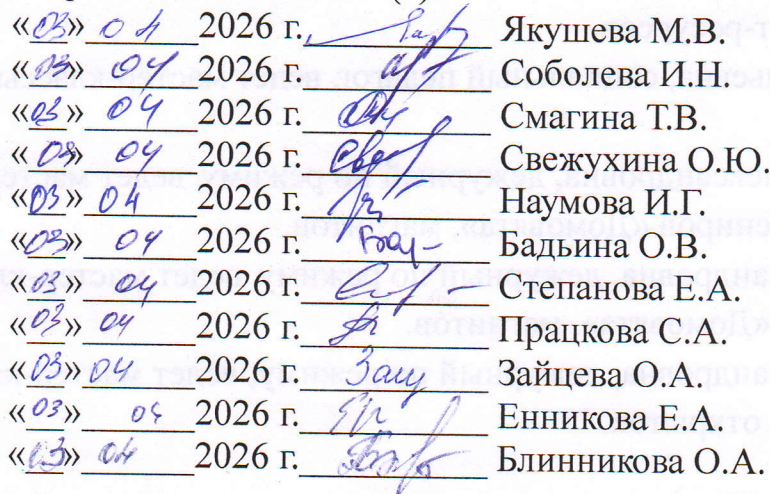 «03» 04 2026 г. Якушева М.В.
«03» 04 2026 г. Соболева И.Н.
«03» 04 2026 г. Смагина Т.В.
«03» 04 2026 г. Свежухина О.Ю.
«03» 04 2026 г. Наумова И.Г.
«03» 04 2026 г. Бадьина О.В.
«03» 04 2026 г. Степанова Е.А.
«03» 04 2026 г. Працкова С.А.
«03» 04 2026 г. Зайцева О.А.
«03» 04 2026 г. Енникова Е.А.
«03» 04 2026 г. Блинникова О.А.